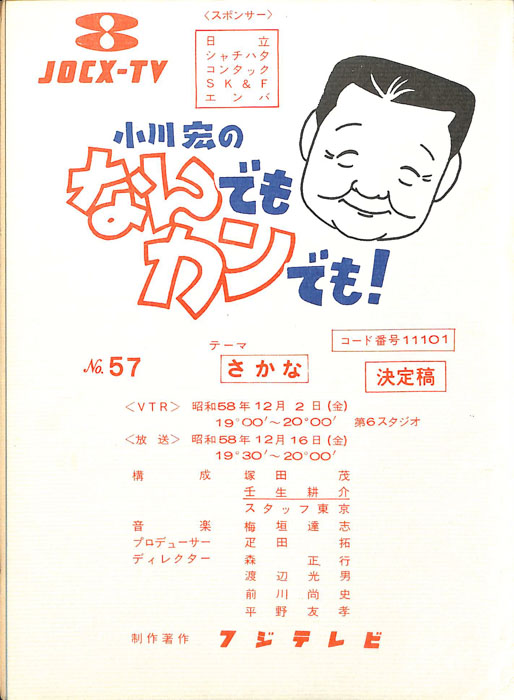 〈スポンサー〉
日立
シャチハタ
コンタック
SK&F
エンバ
JOCX-TV
小川宏の
なんでも
カンでも!
コード番号11101
テーマ
No.57
さかな
決定稿
〈VTR〉 昭和58年12月2日(金)
19°00′〜20°00′ 第6スタジオ
〈放送〉 昭和58年12月16日(金)
19°30′〜20°00′
構成 塚田茂
壬生耕介
スタッフ東京
音楽 梅垣達志
プロデューサー 疋田拓
ディレクター 森正行
渡辺光男
前川尚史
平野友孝
制作著作 フジテレビ